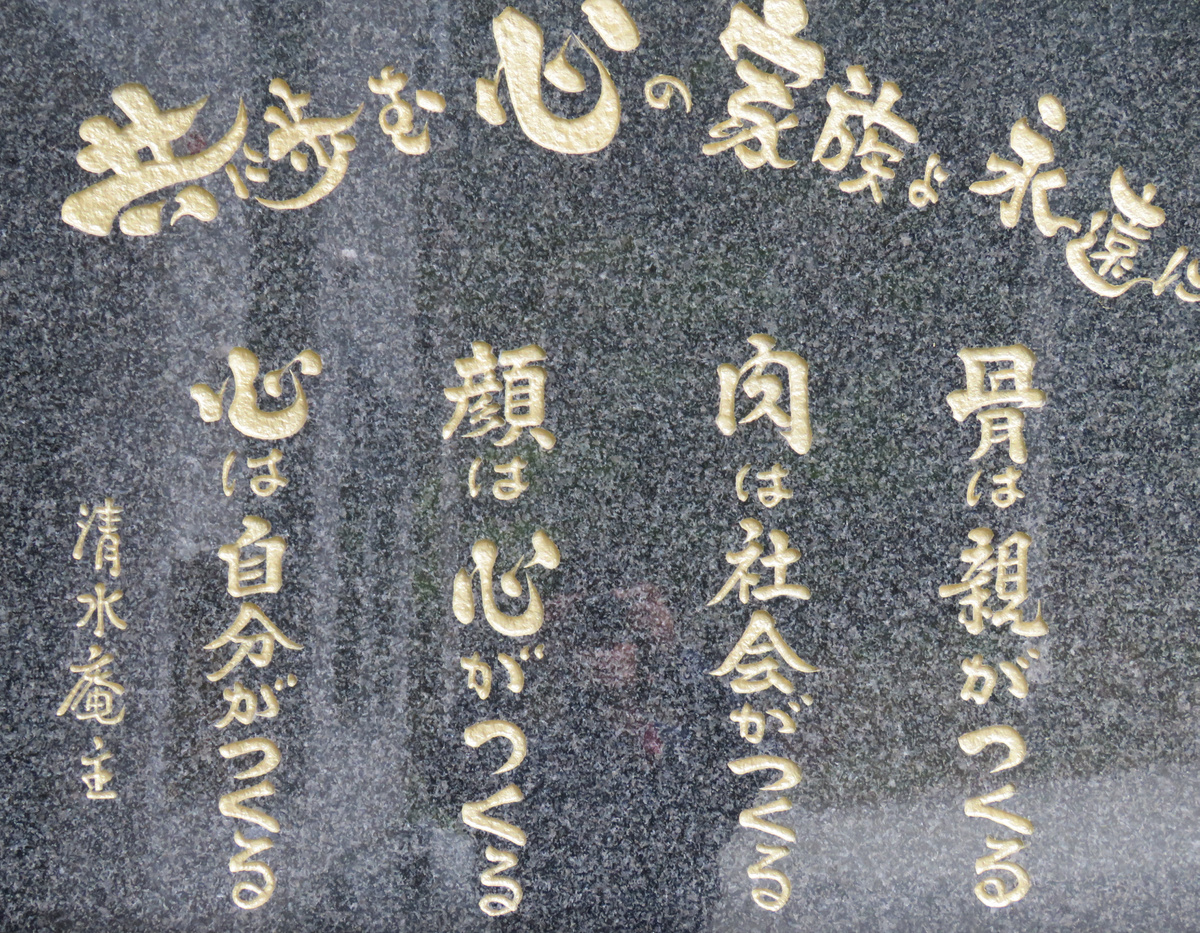 共に歩む心の家族よ永遠に
骨は親がつくる
肉は社会がつくる
顔は心がつくる
心は自分がつくる
清水庵主